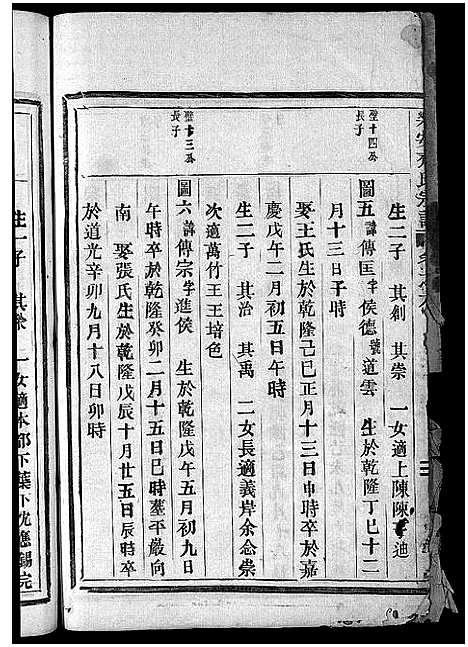 生二子 其創 其崇 一女適上陳陳 迪
聖十四公長子
圖五諱傳匡字侯德號道雲 生於乾隆丁巳十二
月十三日午時
娶王氏生於乾隆己巳正月十三日申時卒於嘉
慶戊午二月初五日午時
生二子 其治 其禹 二女長適義岸余念崇
次適萬竹王王培色
聖十三公長子
圖六諱傳宗字進侯 生於乾隆戊午五月初九日
午時卒於乾隆癸卯二月十五日巳時墓平嚴向
南 娶張氏生於乾隆戊辰十月廿五日辰時卒
於道光辛卯九月十八日卯時
生一子 其崇 一女適本都下葉下沈應錫完